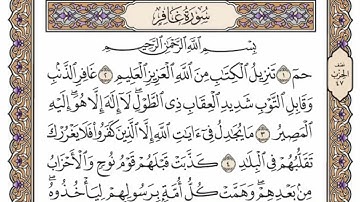 سُورَةُ غَافِرٍ
بِسْمِ اللَّهِ الرَّحْمَٰنِ الرَّحِيمِ
حمٓ ١ تَنزِيلُ الْكِتَٰبِ مِنَ اللَّهِ الْعَزِيزِ الْعَلِيمِ ٢ غَافِرِ الذَّنۢبِ
وَقَابِلِ التَّوْبِ شَدِيدِ الْعِقَابِ ذِى الطَّوْلِ ۖ لَآ إِلَٰهَ إِلَّا هُوَ ۖ إِلَيْهِ
الْمَصِيرُ ٣ مَا يُجَٰدِلُ فِىٓ ءَايَٰتِ اللَّهِ إِلَّا الَّذِينَ كَفَرُوا۟ فَلَا يَغْرُرْكَ
تَقَلُّبُهُمْ فِى الْبِلَٰدِ ٤ كَذَّبَتْ قَبْلَهُمْ قَوْمُ نُوحٍ وَالْأَحْزَابُ
مِنۢ بَعْدِهِمْ ۖ وَهَمَّتْ كُلُّ أُمَّةٍۭ بِرَسُولِهِمْ لِيَأْخُذُوهُ ۖ
الحِزْبِ
٤٧